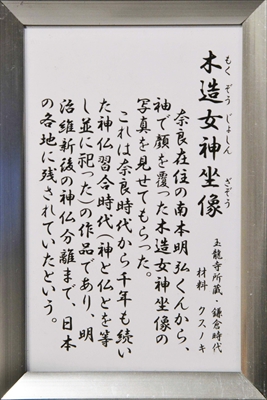 木造女神坐像
もく ぞう じょしん ざぞう
玉龍寺所蔵・鎌倉時代
材料 クスノキ
奈良在住の南本明弘くんから、
袖で顔を覆った木造女神坐像の
写真を見せてもらった。
これは奈良時代から千年も続い
た神仏習合時代(神と仏とを等
し並に祀った)の作品であり、明
治維新後の神仏分離まで、日本
の各地に残されていたという。